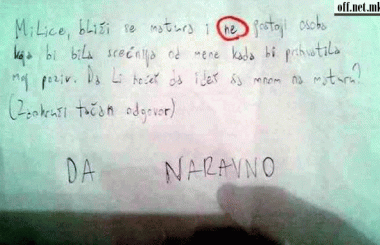 off.net.mk
Milice, bliži se matura i ne postoji osoba
koja bi bila srećnija od mene kada bi prihvatila
moj poziv. Da li hoćeš da ideš sa mnom na maturu?
(Zaokruži tačan odgovor)
DA NARAVNO